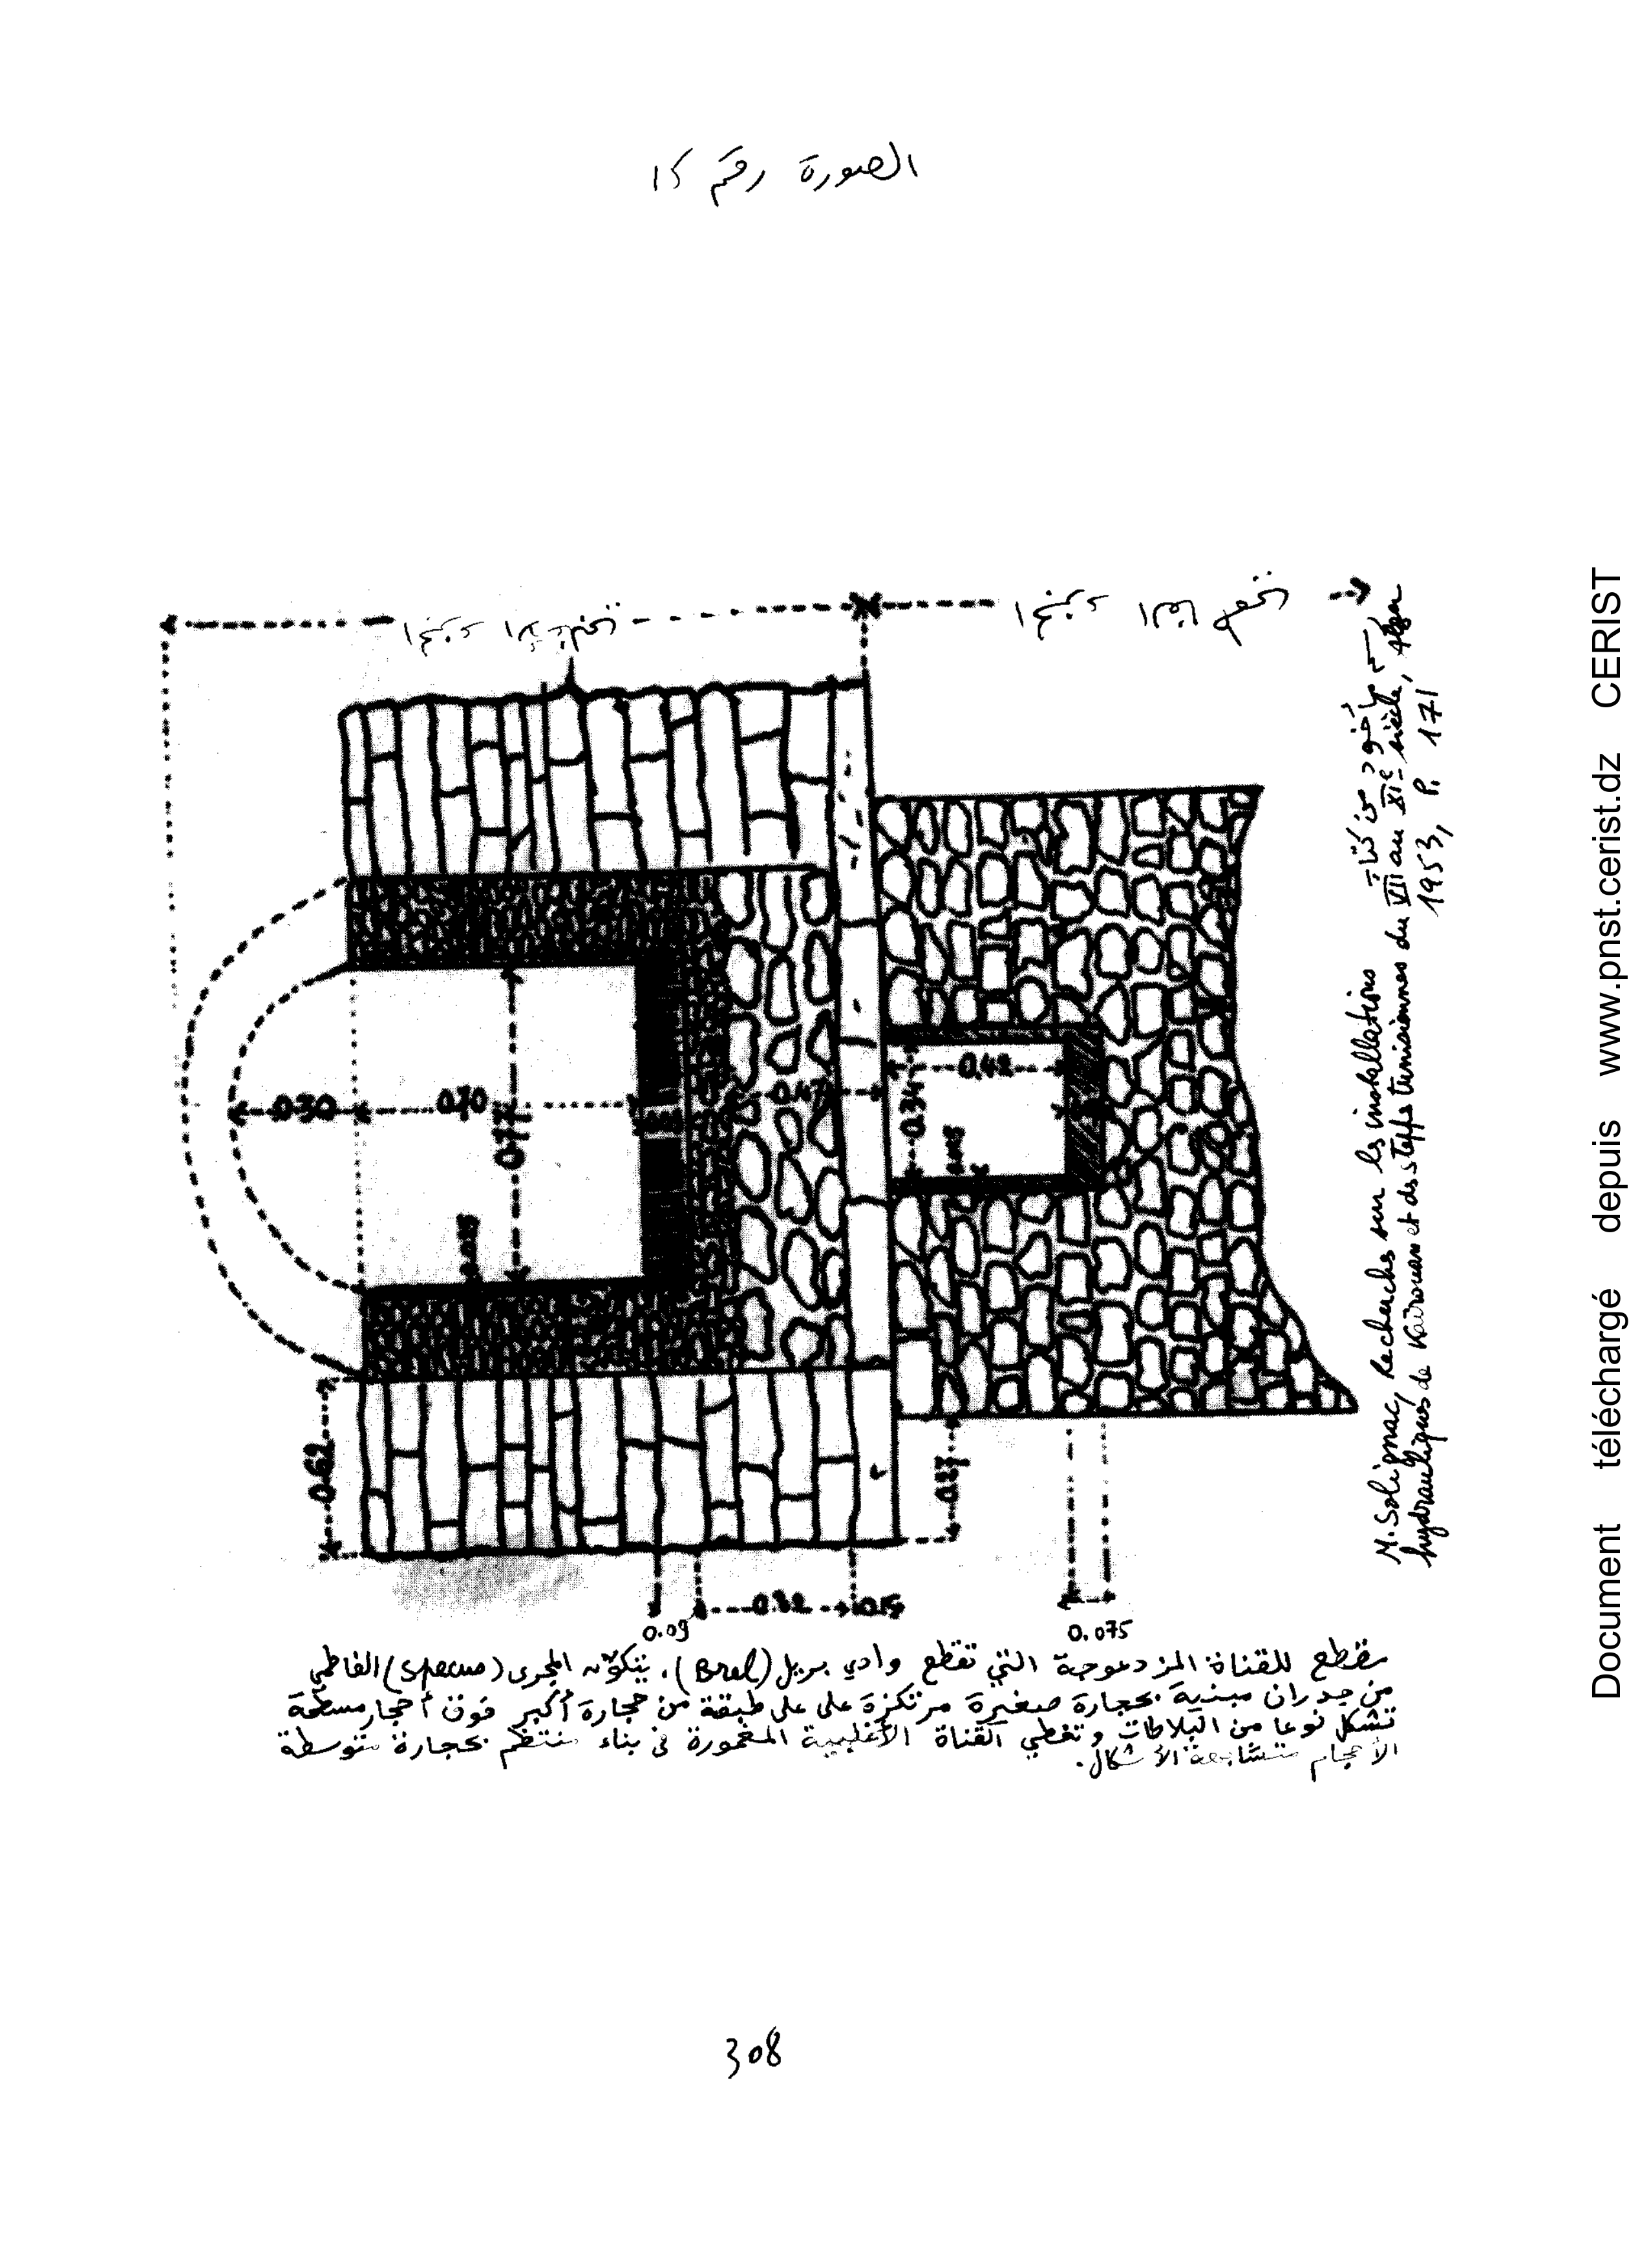 الصورة رقم 15
0.30
0.70
0.77
0.47
0.42
0.34
0.015
0.62
0.27
0.09
0.32
0.15
0.075
رسم مأخوذ من كتاب
M. Solignac, Recherches sur les installations
hydrauliques de Kairouan et des steppes tunisiennes du VII au XIe siècle, Alger
1953, P. 171
مقطع للقناة المزدوجة التي تقطع وادي بريل (Brel). يتكون المجرى (specus) الفاطمي
من جدران مبنية بحجارة صغيرة مرتكزة على على طبقة من حجارة أكبر فوق أحجار مسطحة
تشكل نوعا من البلاطات وتغطي القناة الأغلبية المغمورة في بناء منتظم بحجارة متوسطة
الأحجام متشابهة الأشكال.
308
Document téléchargé depuis www.pnst.cerist.dz CERIST